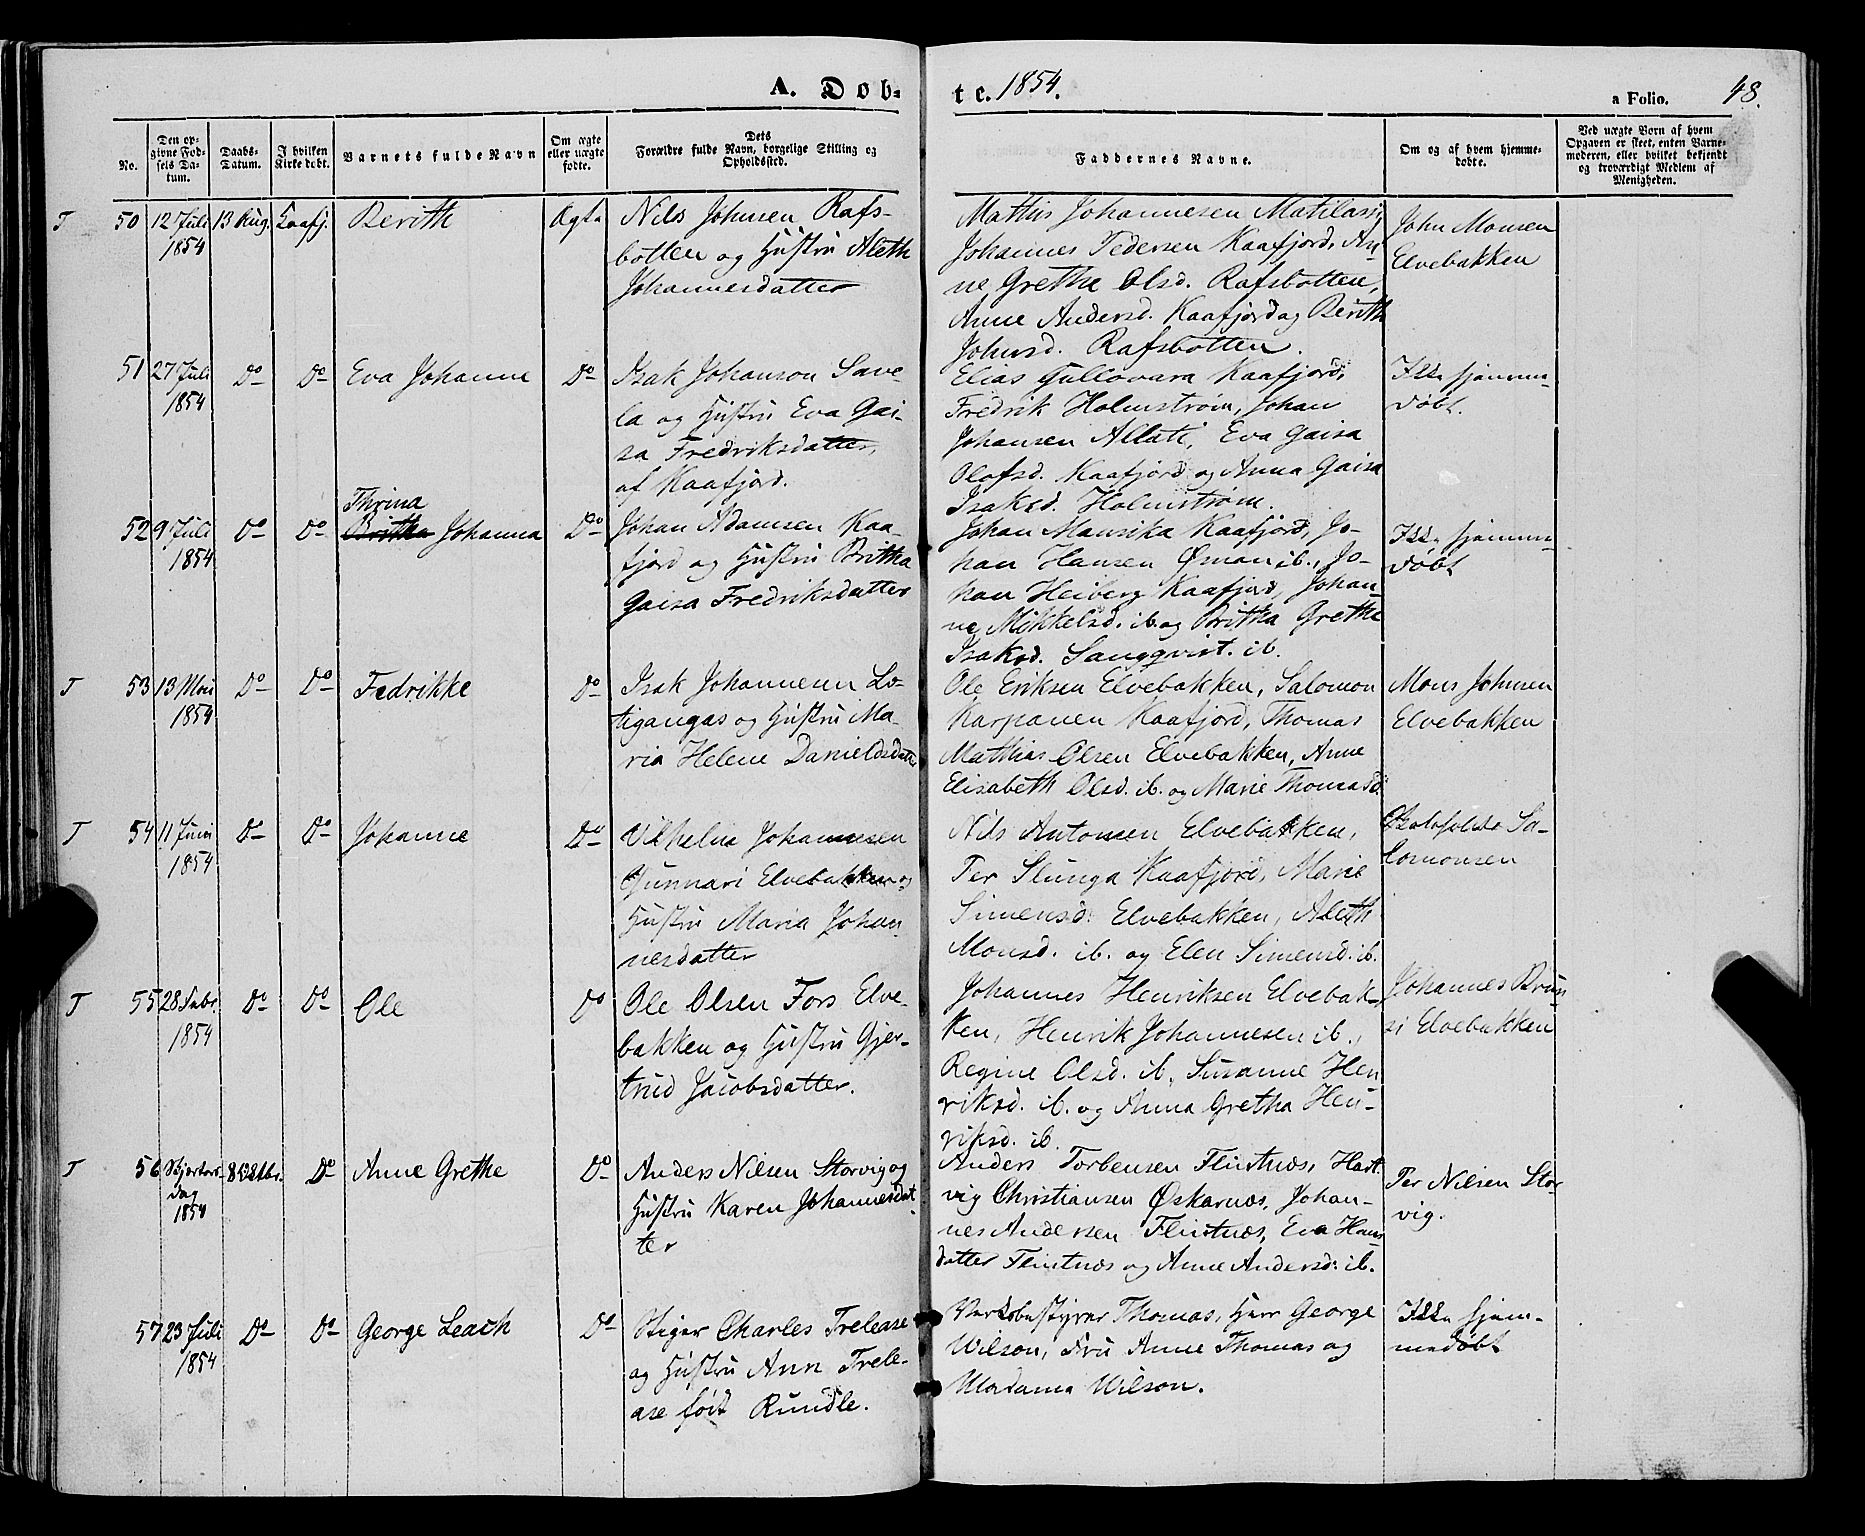 A. Dob-
te. 1854.
a Folio. 48.
No.
Den op-
givne Fød-
sels Da-
tum.
Daabs-
Datum.
I hvilken
Kirke døbt.
Barnets fulde Navn
Om ægte
eller uægte
fødte.
Dets
Forældre fulde Navn, borgelige Stilling og
Opholdssted.
Faddernes Navne.
Om og af hvem hjemme-
døbte.
Ved uægte Børn af hvem
Opgaven er skeet, enten Barne-
moderen, eller hvilket bekjendt
og troværdigt Medlem af
Menigheden.
T 50 12 Juli
1854
13 Aug. Kaafj. Berith Ægte
Nils Johnsen Rafs-
botten og Hustru Aleth
Johannesdatter
Mathis Johannesen Matilasi,
Johannes Pedersen Kaafjord, An-
ne Grethe Olsd. Rafsbotten,
Anne Andersd. Kaafjord og Berith
Johnsd. Rafsbotten.
John Monsen
Elvebakken
51 27 Juli
1854
Do Do Eva Johanne Do
Isak Johanson Save-
la og Hustru Eva Gai-
sa Fredriksdatter,
af Kaafjord.
Elias Gullovara Kaafjord,
Fredrik Holmstrøm, Johan
Johansen Allati, Eva Gaisa
Olofsd. Kaafjord og Anna Gaisa
Isaksd. Holmstrøm.
Ikke hjemme-
døbt.
52 9 Juli
1854
Do Do
Thrina
Britha Johanna Do
Johan Adamsen Kaa-
fjord og Hustru Britha
Gaisa Fredriksdatter
Johan Mansika Kaafjord, Jo-
han Hansen Øsman ib., Jo-
han Heiberg Kaafjord, Johan-
ne Mikkelsd. ib. og Britha Grethe
Isaksd. Sangqvist. ib.
Ikke hjemme-
døbt
T 53 13 Mai
1854
Do Do Fedrikke Do
Isak Johannesen Lo-
tigangas og Hustru Ma-
ria Helene Danielsdatter
Ole Eriksen Elvebakken, Salomon
Karpanen Kaafjord, Thomas
Mathias Olsen Elvebakken, Anne
Elisabeth Olsd. ib. og Marie Thomasd.
Mons Johnsen
Elvebakken
T 54 11 Juni
1854
Do Do Johanne Do
Vilhelm Johannesen
Gunnari Elvebakken og
Hustru Maria Johan-
nesdatter
Nils Antonsen Elvebakken,
Per Slunga Kaafjord, Marie
Simensd. Elvebakken, Aleth
Monsd. ib. og Elen Simensd. ib.
Sa-
lomonsen
T 55 28 Febr.
1854
Do Do Ole Do
Ole Olsen Fors Elve-
bakken og Hustru Gjer-
trud Jacobsdatter.
Johannes Henriksen Elvebak-
ken, Henrik Johannesen ib.,
Regine Olsd. ib., Susanne Hen
riksd. ib. og Anna Gretha Hen-
riksd. ib.
Johannes Brus
si Elvebakken
T 56 Skjertors-
dag
1854
Do Anne Grethe Do
Anders Nilsen Storvig og
Hustru Karen Johannesdat
ter
Anders Torbensen Flintnæs, Hart
vig Christiansen Øskarnæs, Johan-
nes Andersen Flintnæs, Eva Hans
datter Flintnæs og Anne Andersd. ib.
Per Nilsen Stor
vig.
57 23 Juli
1854
Do Do George Leach Do
Stiger Charles Trelease
og Hustru Ann Trele-
ase født Rundle.
Verksbestyrer Thomas, Herr George
Wilson, Fru Anne Thomas og
Madame Wilson.
Ikke hjem-
medøbt